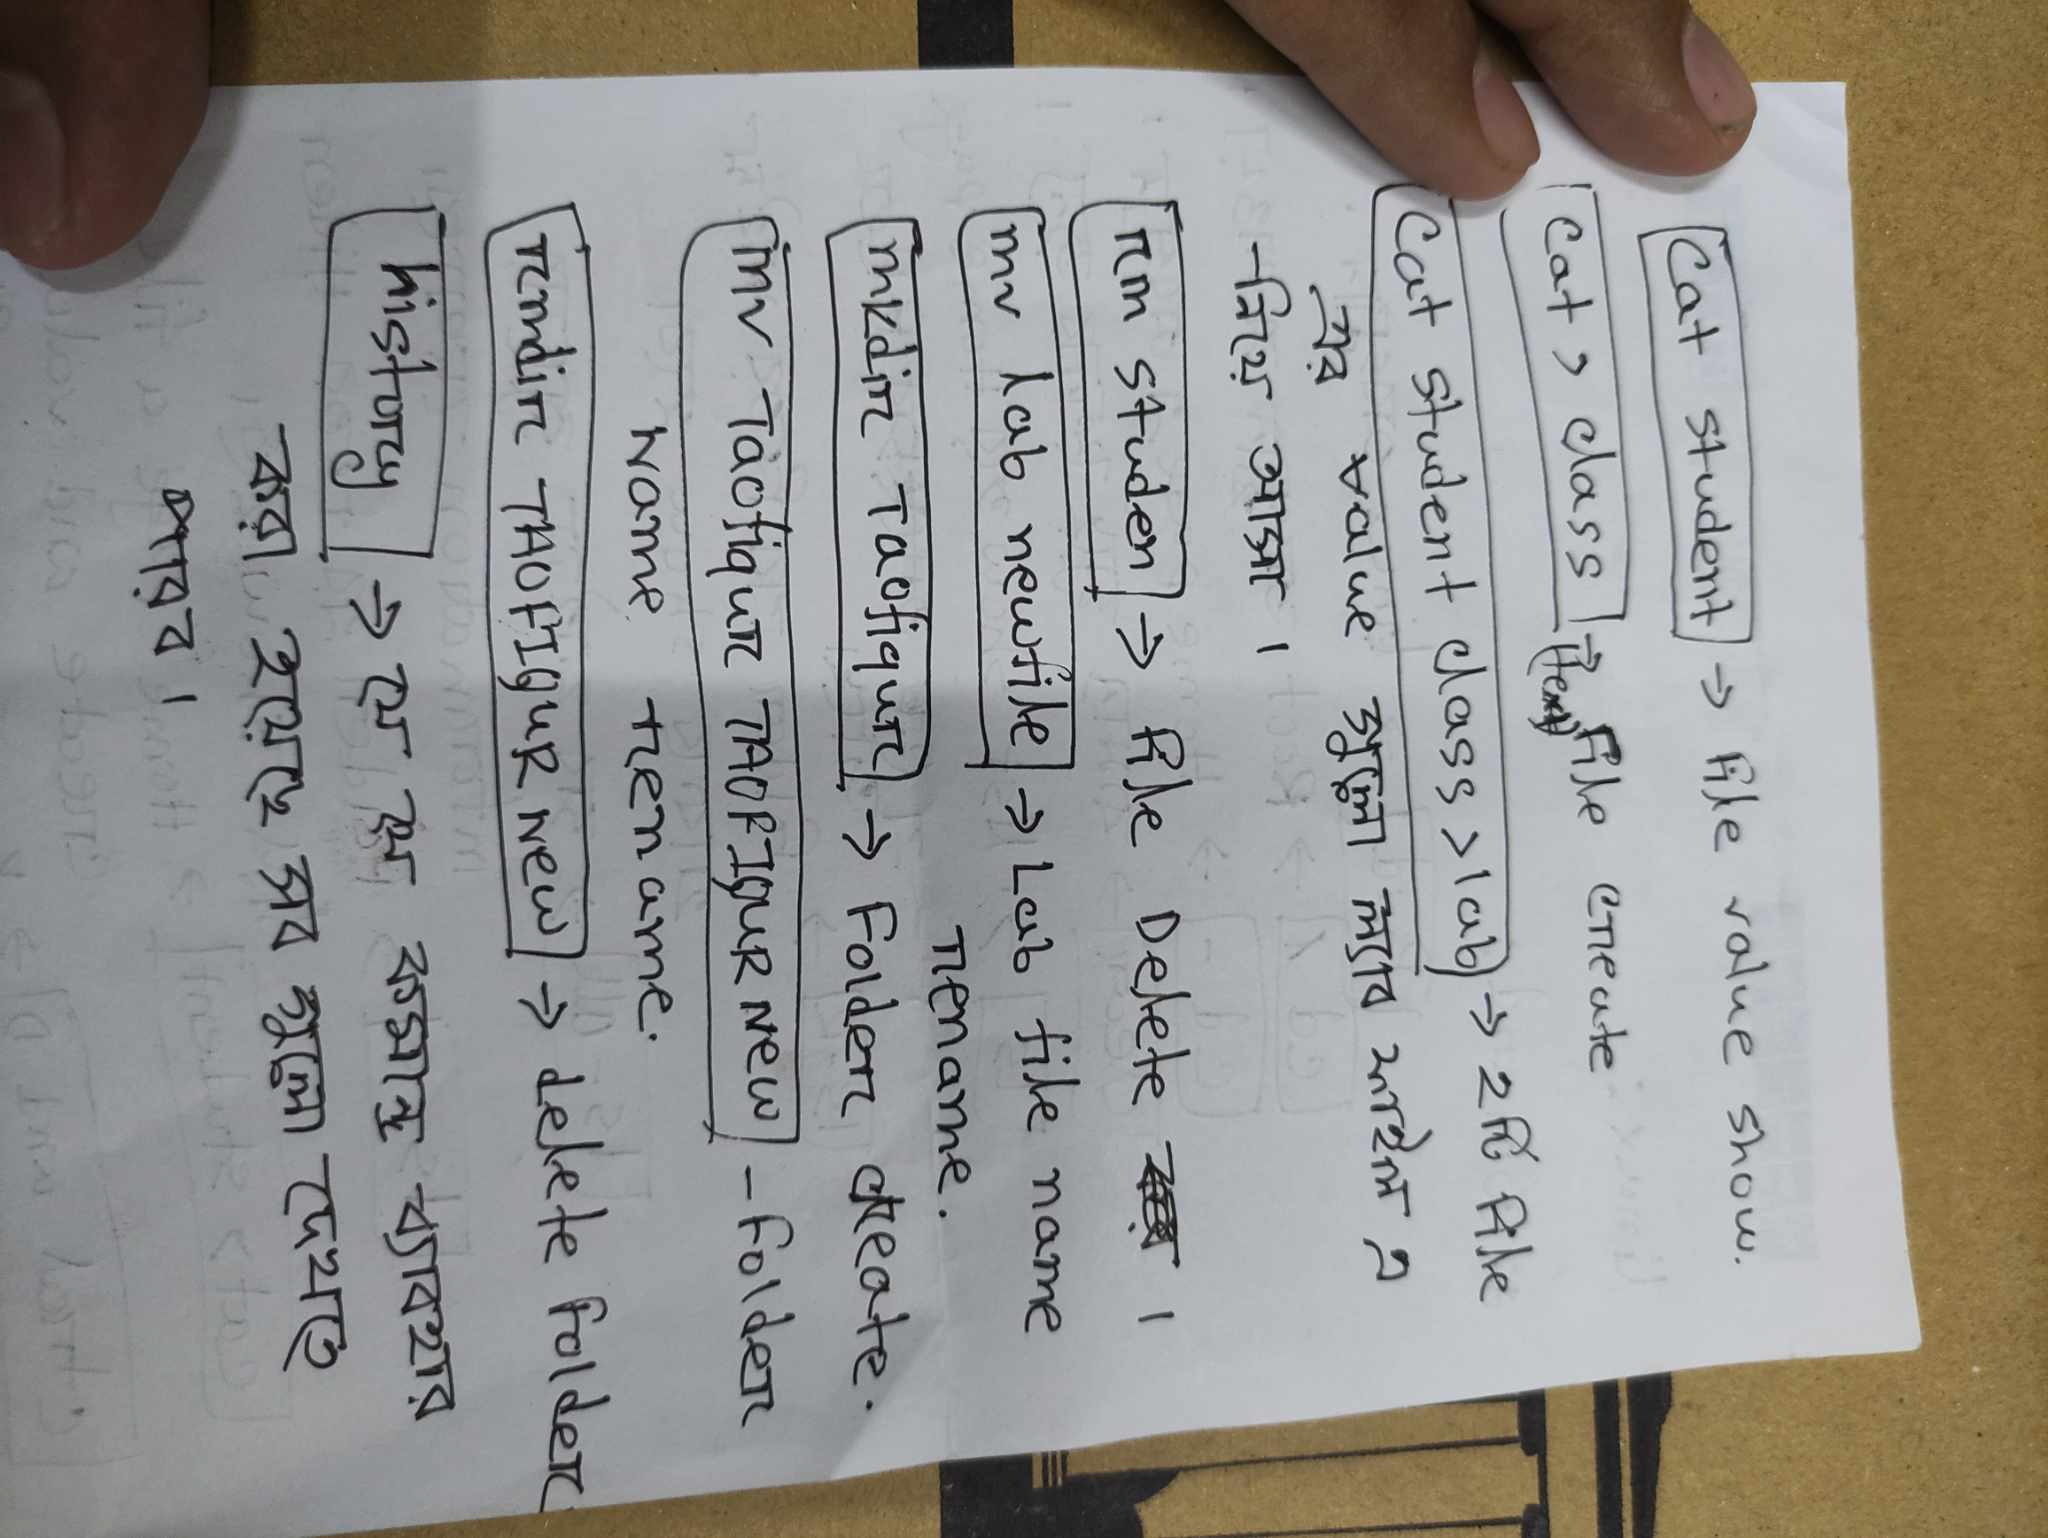 Cat student → File value show.
Cat > class → File create
(Text)
Cat student class > lab → 2টি File
এর value গুলো ল্যাব ফাইল এ
নিয়ে আসা ।
rm studen → File Delete ।
mv lab newfile → Lab file name
rename.
mkdir Taofiqur → Folder create.
mv Taofiqur TAOFIQUR NEW - Folder
Name rename.
rmdir TAOFIQUR NEW → delete Folder
history → যে যে কমান্ড ব্যাবহার
করা হয়েছে সব গুলো দেখাতে
পারব ।